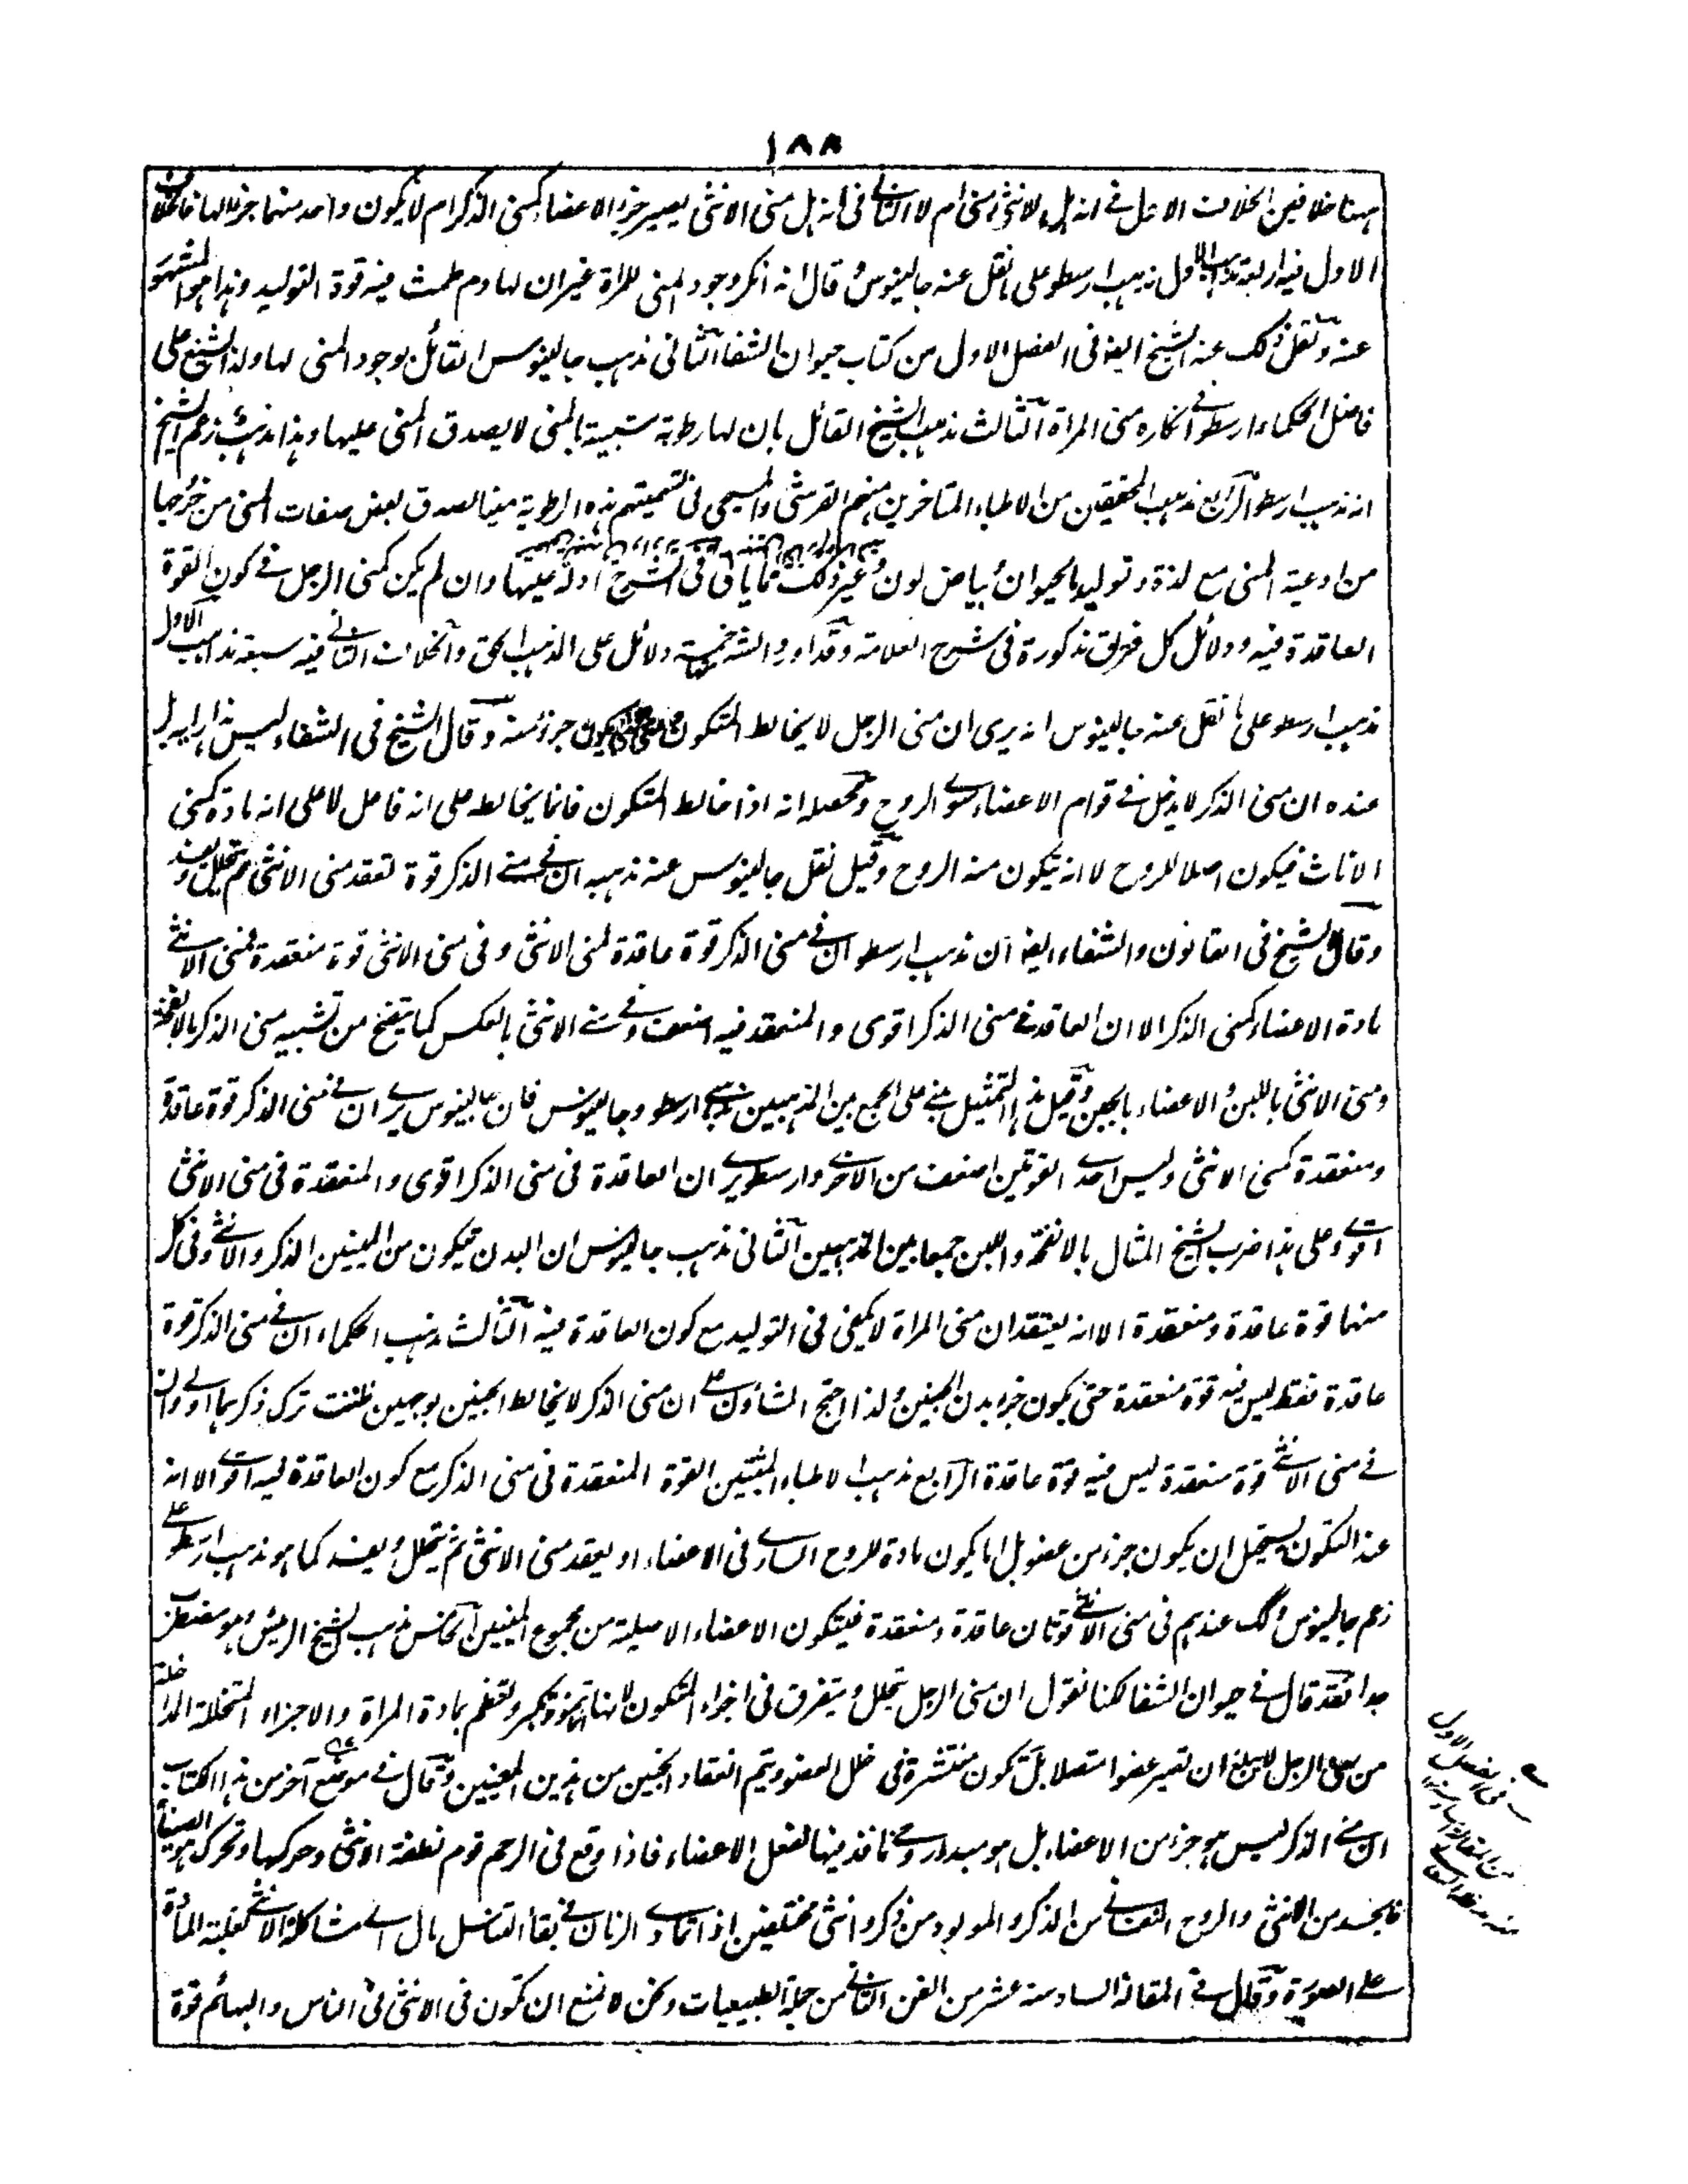 ١٨٨
ههنا خلافين الخلاف الاول في انه هل للانثى مني ام لا الثاني في انه هل مني الانثى يصير جزء الاعضاء كمني الذكر ام لا يكون واحد منهما جزءا لها فالخلاف
الاول فيه اربعة مذاهب الاول مذهب ارسطو على ما نقل عنه جالينوس قال انه انكر وجود المني للمرأة غير ان لها دم طمث فيه قوة التوليد وهذا هو المشهور
عنه ونقل ذلك عنه الشيخ ايضا في الفصل الاول من كتاب حيوان الشفا الثاني مذهب جالينوس القائل بوجود المني لها ولذا شنع على
فاضل الحكماء ارسطو في انكاره مني المرأة الثالث مذهب الشيخ القائل بان لها رطوبة شبيهة بالمني لا يصدق المني عليها وهذا مذهب زعم الشيخ
انه مذهب ارسطو الرابع مذهب المحققين من الاطباء المتاخرين منهم القرشي والمسيحي في تسميتهم هذه الرطوبة منيا لصدق بعض صفات المني من خروجها
من اوعية المني مع لذة وتوليد الحيوان وبياض لون وغير ذلك مما ياتي في الشرح ادلة عليها وان لم يكن كمني الرجل في كون القوة
العاقدة فيه ودلائل كل فريق مذكورة في شرح العلامة وقد اورد الشه خمسة دلائل على المذهب الحق والخلاف الثاني فيه سبعة مذاهب الاول
مذهب ارسطو على ما نقل عنه جالينوس انه يرى ان مني الرجل لا يخالط المتكون يكون جزء منه وقال الشيخ في الشفاء ليس هذا رايه بل
عنده ان مني الذكر لا يدخل في قوام الاعضاء سوى الروح ومحصله انه اذا خالط المتكون فانما يخالط على انه فاعل لا على انه مادة كمني
الاناث فيكون اصلا للروح لا انه يتكون منه الروح وقيل نقل جالينوس عنه مذهبه ان في مني الذكر قوة تعقد مني الانثى ثم يتحلل ويفسد
وقال الشيخ في القانون والشفاء ايضا ان مذهب ارسطو ان في مني الذكر قوة عاقدة لمني الانثى وفي مني الانثى قوة منعقدة فمني الانثى
مادة الاعضاء كمني الذكر الا ان العاقد في مني الذكر اقوى والمنعقد فيه اضعف وفي مني الانثى بالعكس كما يتضح من تشبيه مني الذكر بالانفحة
ومني الانثى باللبن والاعضاء بالجبن وقيل هذا التمثيل مبني على الجمع بين المذهبين مذهب ارسطو وجالينوس فان جالينوس يرى ان في مني الذكر قوة عاقدة
ومنعقدة كمني الانثى وليس احدى القوتين اضعف من الاخرى وارسطو يرى ان العاقدة في مني الذكر اقوى والمنعقدة في مني الانثى
اقوى وعلى هذا ضرب الشيخ المثال بالانفحة واللبن جمعا بين المذهبين الثاني مذهب جالينوس ان البدن يتكون من المنيين الذكر والانثى وفي كل
منهما قوة عاقدة ومنعقدة الا انه يعتقد ان مني المرأة لا يكفي في التوليد مع كون العاقدة فيه الثالث مذهب الحكماء ان في مني الذكر قوة
عاقدة فقط ليس فيه قوة منعقدة حتى يكون جزء بدن الجنين ولذا احتج المشاؤن على ان مني الذكر لا يخالط الجنين بوجهين ظننت ترك ذكرهما اولى وان
في مني الانثى قوة منعقدة ليس فيه قوة عاقدة الرابع مذهب الاطباء المثبتين القوة المنعقدة في مني الذكر مع كون العاقدة فيه اقوى الا انه
عند التكون يستحيل ان يكون جزء من عضو بل اما يكون مادة للروح الساري في الاعضاء او يعقد مني الانثى ثم يتحلل ويفسد كما هو مذهب ارسطو على
زعم جالينوس وكذلك عندهم في مني الانثى قوتان عاقدة ومنعقدة فيتكون الاعضاء الاصلية من مجموع المنيين الخامس مذهب الشيخ الرئيس وهو مضطرب
جدا فقد قال في حيوان الشفا لكنا نقول ان مني الرجل يتحلل ويتفرق في اجزاء المتكون لانها تنمو وتكبر وتعظم بمادة المرأة والاجزاء المتحللة الداخلة
من مني الرجل لا يبلغ ان تصير عضوا متصلا بل تكون منتشرة في خلل العضو ويتم انعقاد الجنين من هذين المعنيين وقال في موضع آخر من هذا الكتاب
ان مني الذكر ليس هو جزء من الاعضاء بل هو مبدأ روحي نافذ فيها لفعل الاعضاء فاذا وقع في الرحم قوم نطفة الانثى وحركها وتحرك هو ايضا
فالجسد من الانثى والروح النفساني من الذكر والمولود من ذكر وانثى مختلفين اذا تمادى الزمان في بقاء التناسل مال الى مشاكلة الانثى لغلبة المادة
على الصورة وقال في المقالة السادسة عشر من الفن الثامن من جملة الطبيعيات ونحن لا نمنع ان تكون في الانثى في الناس والبهائم قوة